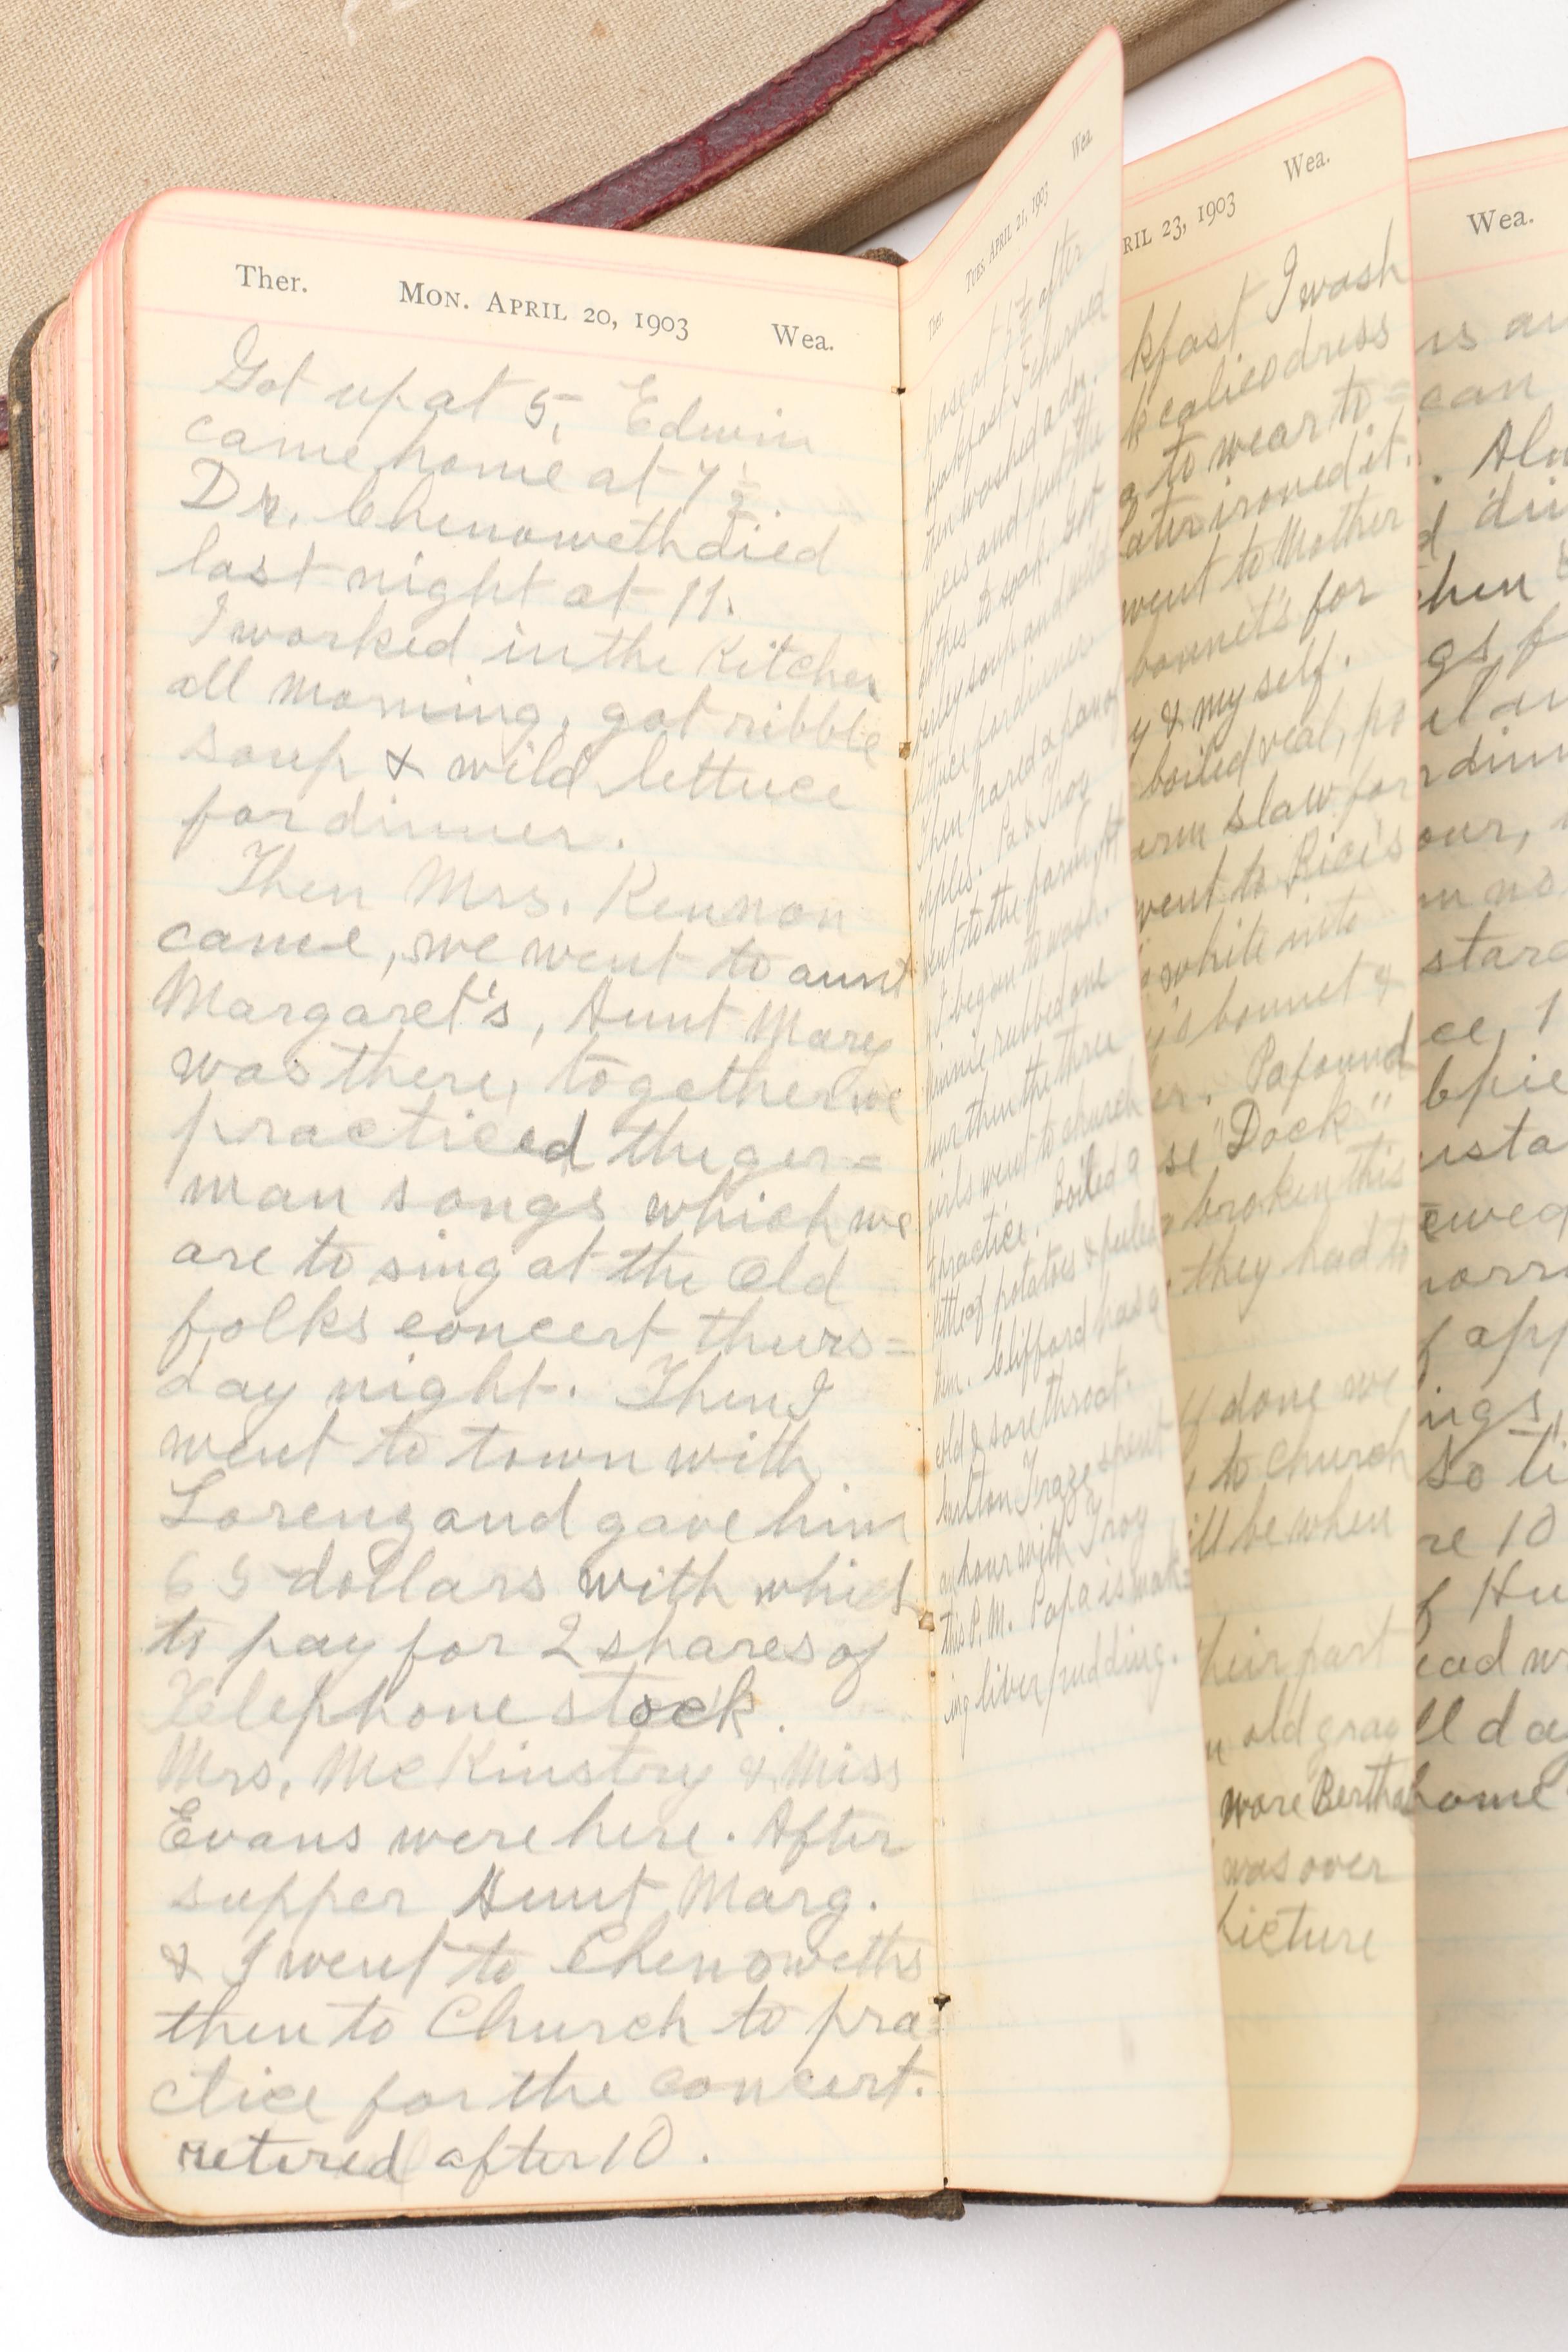 Ther. MON. APRIL 20, 1903 Wea.
Got up at 5, Edwin
came home at 7 ½.
Dr. Chenoweth died
last night at 11.
I worked in the Kitchen
all morning, got ribble
soup & wild lettuce
for dinner.
Then Mrs. Kennon
came, we went to aunt
Margaret's, Aunt Mary
was there, together we
practiced the ger=
man songs which we
are to sing at the Old
folks concert thurs=
day night. Then I
went to town with
Loreng and gave him
65 dollars with which
to pay for 2 shares of
Telephone stock.
Mrs. McKinstry & Miss
Evans were here. After
supper Aunt Marg.
& I went to Chenoweths
then to Church to pra=
ctice for the concert.
retired after 10.
Ther. TUES. APRIL 21, 1903 Wea.
arose at 5 ½ after
breakfast I churned
then washed a doz.
pieces and put the
clothes to soak. Got
barley soup and wild
lettuce for dinner.
Then pared a pan of
apples. Pa & Troy
went to the farm,
I began to wash.
Minnie rubbed one
then the three
girls went to church
to practice. Boiled a
kettle of potatoes & peeled
them. Clifford has a
cold & sore throat.
spent
an hour with Troy
this P.M. Papa is mak=
ing liver pudding.
RIL 23, 1903 Wea.
kfast I wash
k calico dress
to wear to =
later ironed it.
went to Mother
bonnets for
y & myself.
boiled veal, po
arm slaw for
went to Rice's
white into
's bonnet &
er. Pa found
se "Dock"
broken this
they had to
done we
to Church
ill be when
their part
old gray
wore Bertha
was over
picture
Wea.
rs an
can
. Alm
d din
hen
gs f
dinn
our,
stard
ce, 1
pie
usta
ewed
f app
ings,
So ti
re 10
f Hu
ead w
ll day
home